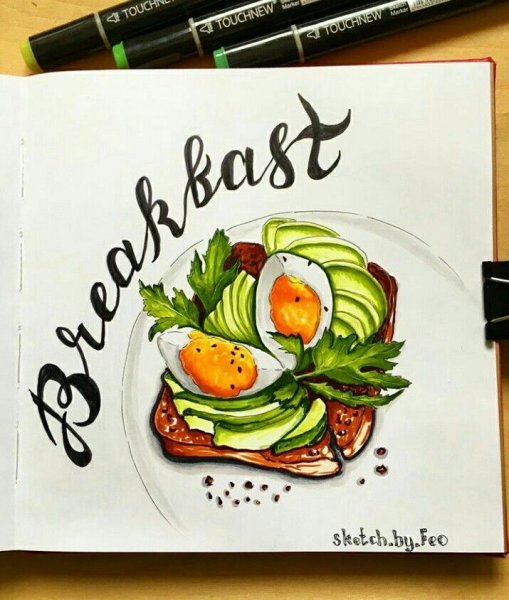 TOUCHNEW
TOUCHNEW
TOUCHNEW
Marker
Breakbast
sketch.by.Feo